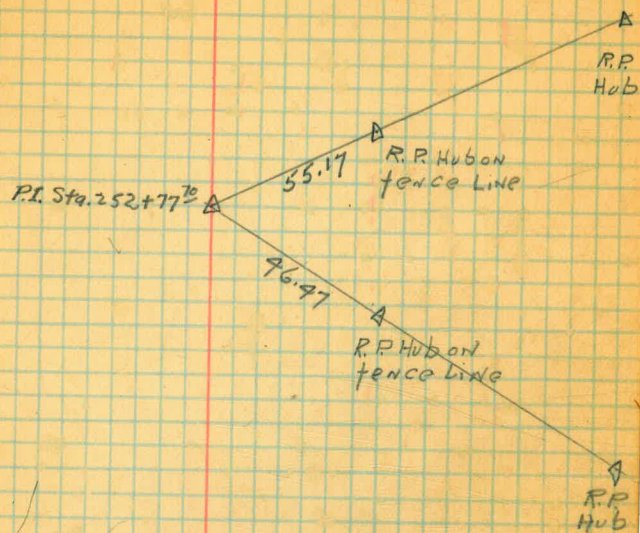 R.P.
Hub
R.P. Hub on
fence Line
55.17
P.I. Sta. 252+77⁷⁰
46.47
R.P. Hub on
fence Line
R.P.
Hub